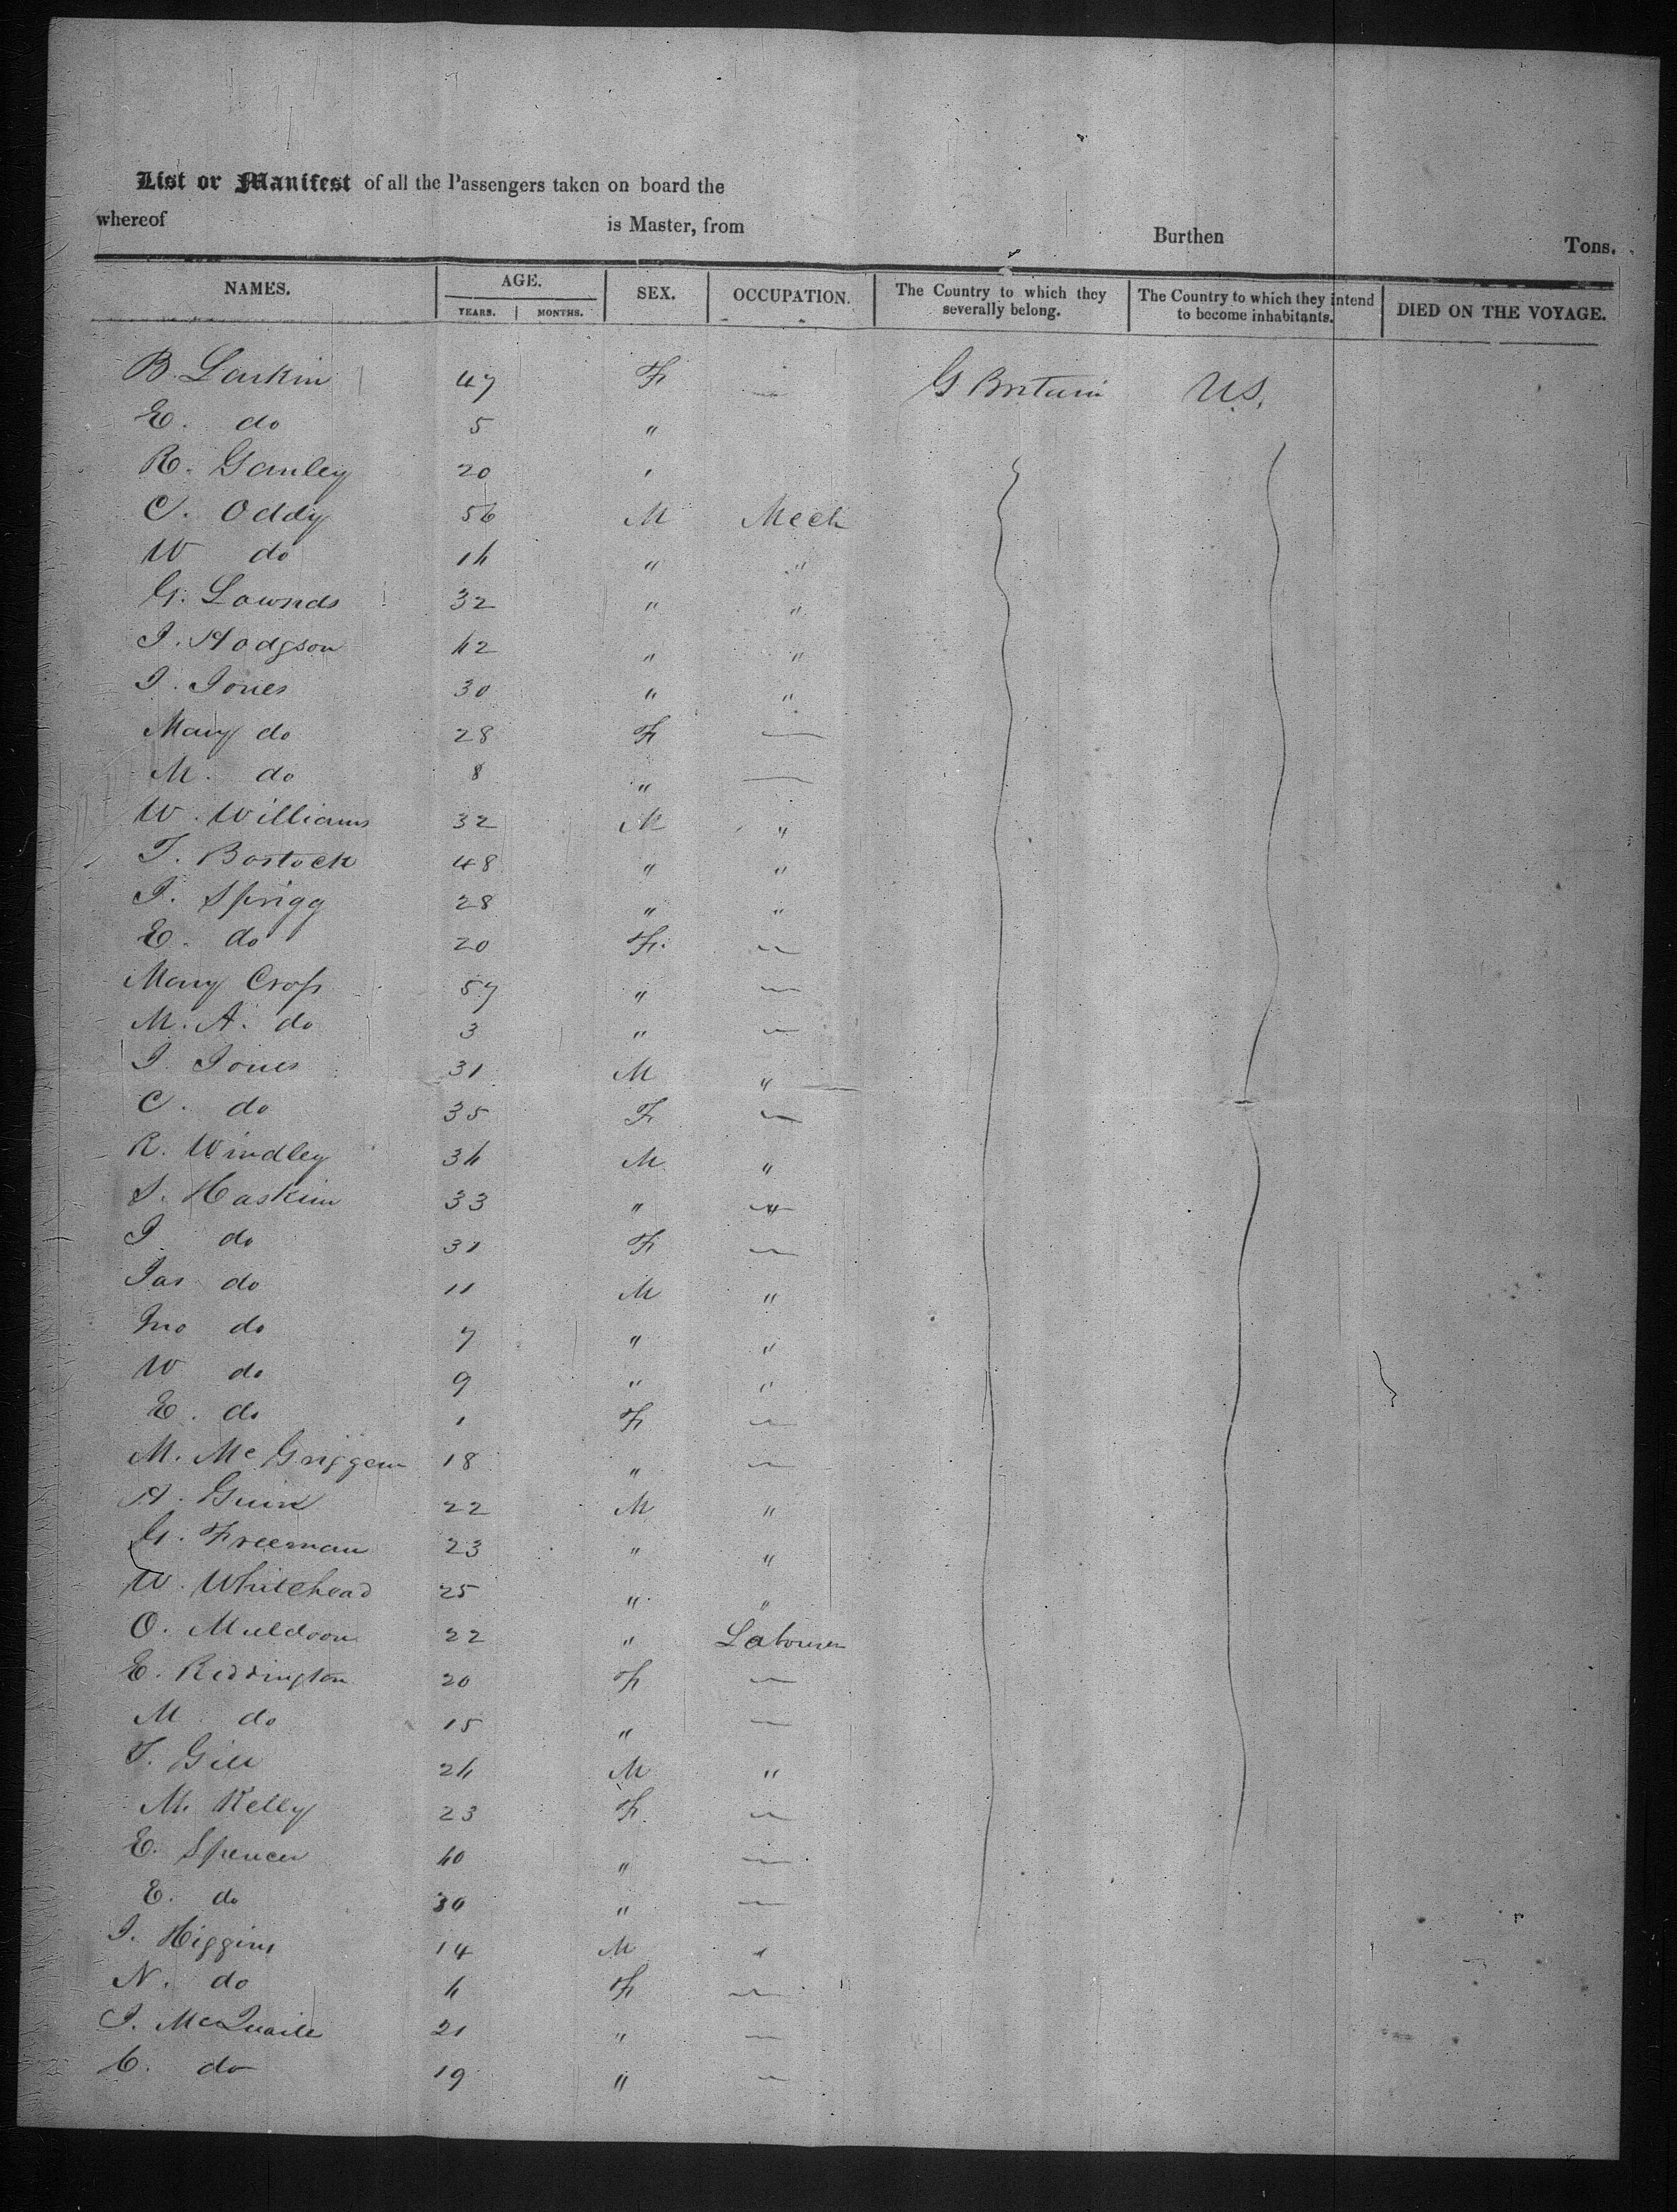 List or Manifest of all the Passengers taken on board the
whereof is Master, from Burthen Tons.
NAMES. AGE. SEX. OCCUPATION. The Country to which they severally belong. The Country to which they intend to become inhabitants. DIED ON THE VOYAGE.
YEARS. MONTHS.
B. Larkin 47 F — G Britain U.S.
E. do 5 "
R. Ganley 20 "
C. Oddy 56 M Mech
W do 14 " "
G. Lownds 32 " "
J. Hodgson 42 " "
J. Jones 30 " "
Mary do 28 F —
M. do 8 " —
W. Williams 32 M "
T. Bostock 48 " "
J. Sprigg 28 " "
E. do 20 F. —
Mary Cross 57 " —
M. A. do 3 " —
J Jones 31 M "
C. do 35 F —
R. Windley 34 M "
S. Haskim 33 " "
J do 31 F —
Jas do 11 M "
Jno do 7 " "
W do 9 " "
E. do 1 F —
M. Mc 18 " —
22 M "
G. Freeman 23 " "
W. Whitehead 25 " "
O. Muldoon 22 " Labourer
E. Riddington 20 F —
M do 15 " —
T. Gill 24 M "
M. Kelly 23 F —
E. Spencer 40 " —
E. do 30 " —
J. Higgins 14 M "
N. do 4 F —
J. McQuaile 21 " —
C. do 19 " —